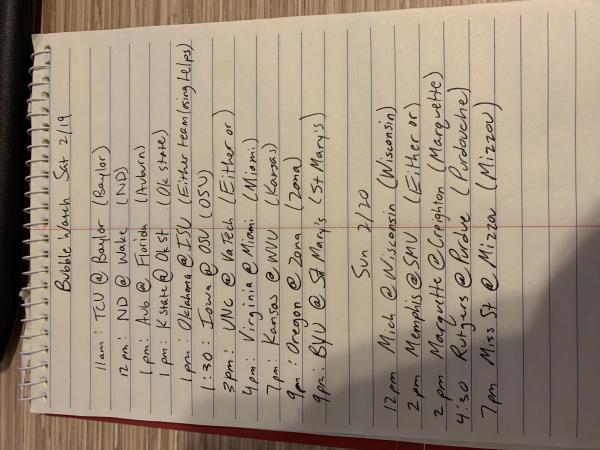 Bubble Watch Sat 2/19
11am: TCU @ Baylor (Baylor)
12pm: ND @ Wake (ND)
1pm: Aub @ Florida (Auburn)
1pm: K State @ Ok St (Ok State)
1pm: Oklahoma @ ISU (Either team losing helps)
1:30: Iowa @ OSU (OSU)
3pm: UNC @ VaTech (Either or)
4pm: Virginia @ Miami (Miami)
7pm: Kansas @ WVU (Kansas)
9pm: Oregon @ Zona (Zona)
9pm: BYU @ St Mary's (St Mary's)
Sun 2/20
12pm Mich @ Wisconsin (Wisconsin)
2pm Memphis @ SMU (Either or)
2pm Marquette @ Creighton (Marquette)
4:30 Rutgers @ Purdue (Purdouche)
7pm Miss St @ Mizzou (Mizzou)